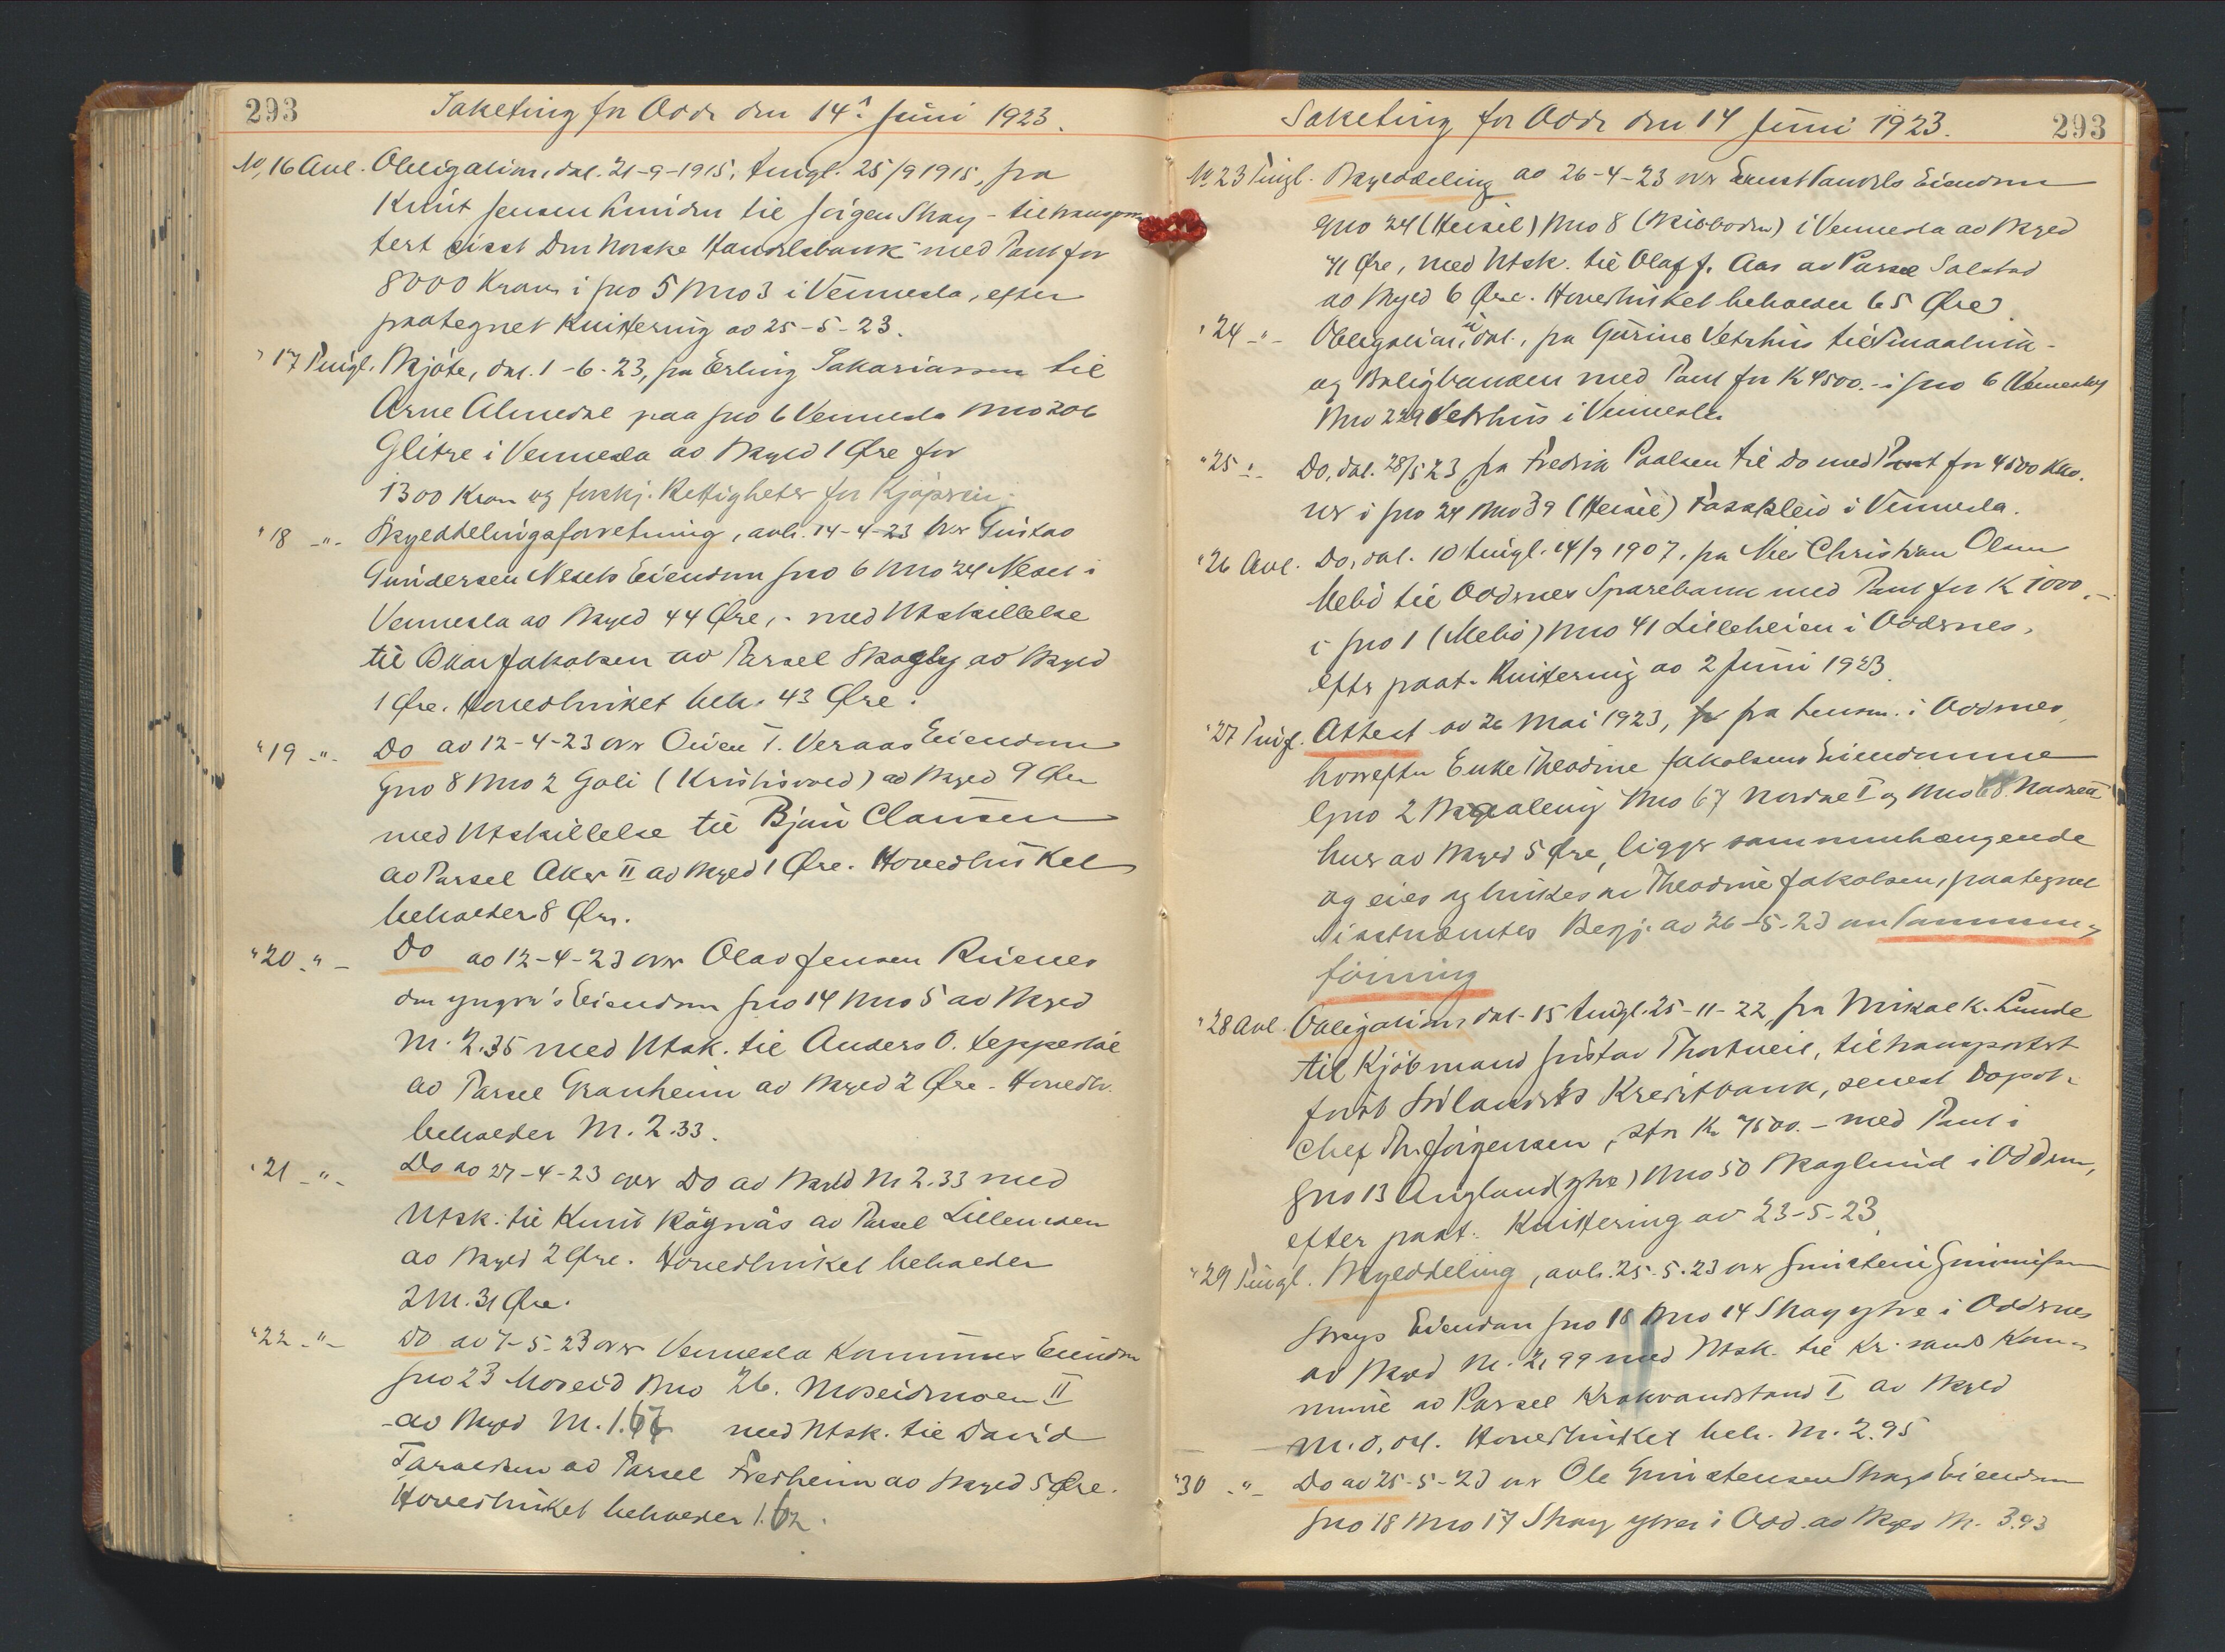 293
Saketing for Odd den 14. Juni 1923.
No. 16 Avl. Obligation, dat. 21-9-1915, tingl. 25/9 1915, fra
Knut Jensen Lunden til Jörgen Skay - tiltranspor
tert sisst Den Norske Handelsbank - med Pant for
8000 Kroner i Gno 5 Bno 3 i Vennesla, efter
paategnet Kvittering av 25-5-23.
" 17 Tingl. Skjöte, dat. 1-6-23, fra Erling Sakariassen til
Arne Almedal paa Gno 6 Vennesla Bno 206
Glitre i Vennesla av Skyld 1 Øre for
1300 Kron og forskj. Rettigheter for Kjöperen.
" 18 -"- Skylddelingsforretning, avh. 14-4-23 over Gustav
Gundersen Nesets Eiendom Gno 6 Bno 24 Neset i
Vennesla av Skyld 44 Øre, - med Utskillelse
til Oskar Jakobsen av Parsel Skogly av Skyld
1 Øre. Hovedbruket beh. 43 Øre.
" 19 -"- Do av 12-4-23 over Eiendom
Gno 8 Bno 2 Goli (Kristisvold) av Skyld 9 Øre
med Utskillelse til Bjarn Clausen
av Parsel Aker II av Skyld 1 Øre. Hovedbruket
beholder 8 Øre.
" 20 -"- Do av 12-4-23 over Olav Jensen Risnes
den yngre's Eiendom Gno 14 Bno 5 av Skyld
M. 2.35 med Utsk. til Anders O. Leppestöl
av Parsel Granheim av Skyld 2 Øre - Hovedbr.
beholder M. 2.33.
" 21 -"- Do av 27-4-23 over Do av Skyld M 2.33 med
Utsk. til Knut Röynås av Parsel
av Skyld 2 Øre. Hovedbruket beholder
2 M. 31 Øre.
" 22 -"- Do av 7-5-23 over Vennesla Kommunes Eiendom
Gno 23 Moseid Bno 26. Moseidmoen II
av Skyld M. 1.67 med Utsk. til David
Taraldsen av Parsel Fredheim av Skyld 5 Øre.
Hovedbruket beholder 1.62.
Saketing for Odd den 14 Juni 1923.
293
No 23 Tingl. Skylddeling av 26-4-23 over Eiendom
Gno 24 (Heisel) Bno 8 (Skibboden) i Vennesla av Skyld
71 Øre, med Utsk. til Olaf J. Aas av Parsel Solstad
av Skyld 6 Øre. Hovedbruket beholder 65 Øre.
" 24 -"- Obligation, udat., fra Gurine Vetrhus til Smaabruk-
og Boligbanken med Pant for K 4500.- i Gno 6 (Vennesla)
Bno 229 Vetrhus i Vennesla
" 25 -"- Do, dat. 28/5 23, fra Fredrik Paalsen til Do med Pant for 4500 Kro.
ner i Gno 24 Bno 39 (Heisel) i Vennesla.
" 26 Avl. Do, dat. 10 tingl. 14/9 1907, fra Nic Christian Olsen
Mebö til Oddernes Sparebank med Pant for K 1000.-
i Gno 1 (Mebö) Bno 41 Lilleheien i Oddernes,
efter paat. Kvittering av 2 Juni 1923.
" 27 Tingl. Attest av 26 Mai 1923, fra Lensm. i Oddernes,
hvorefter Enke Theodine Jakobsens Eiendomme
Gno 2 Bno 67 Nordre I og Bno 68
hus av Skyld 5 Øre, ligger sammenhængende
og eies og brukes av Theodine Jakobsen, paategnet
Begj. av 26-5-23 om Sammen-
föining
" 28 Avl. Obligation, dat. 15 tingl. 25-11-22, fra Mikal K. Lunde
til Kjöbmand Gustav Thortveit, tiltransportert
först Sörlandets Kreditbank, senest Depot-
chef Th. Jörgensen, stor K. 7500.- med Pant i
Gno 13 Augland (ytre) Bno 50 Skoglund i Oddern,
efter paat. Kvittering av 23-5-23
" 29 Tingl. Skylddeling, avh. 25-5-23 over
Eiendom Gno 18 Bno 14 Skay ytre i Oddernes
av Skyld M. 2,99 med Utsk. til Kr.sands Kom-
mune av Parsel Krokvandstand I av Skyld
M. 0,04. Hovedbruket beh. M. 2.95
" 30 -"- Do av 25-5-23 over Ole Gunstensen Skays Eiendom
Gno 18 Bno 17 Skay ytre i Odd. av Skyld M. 3.93